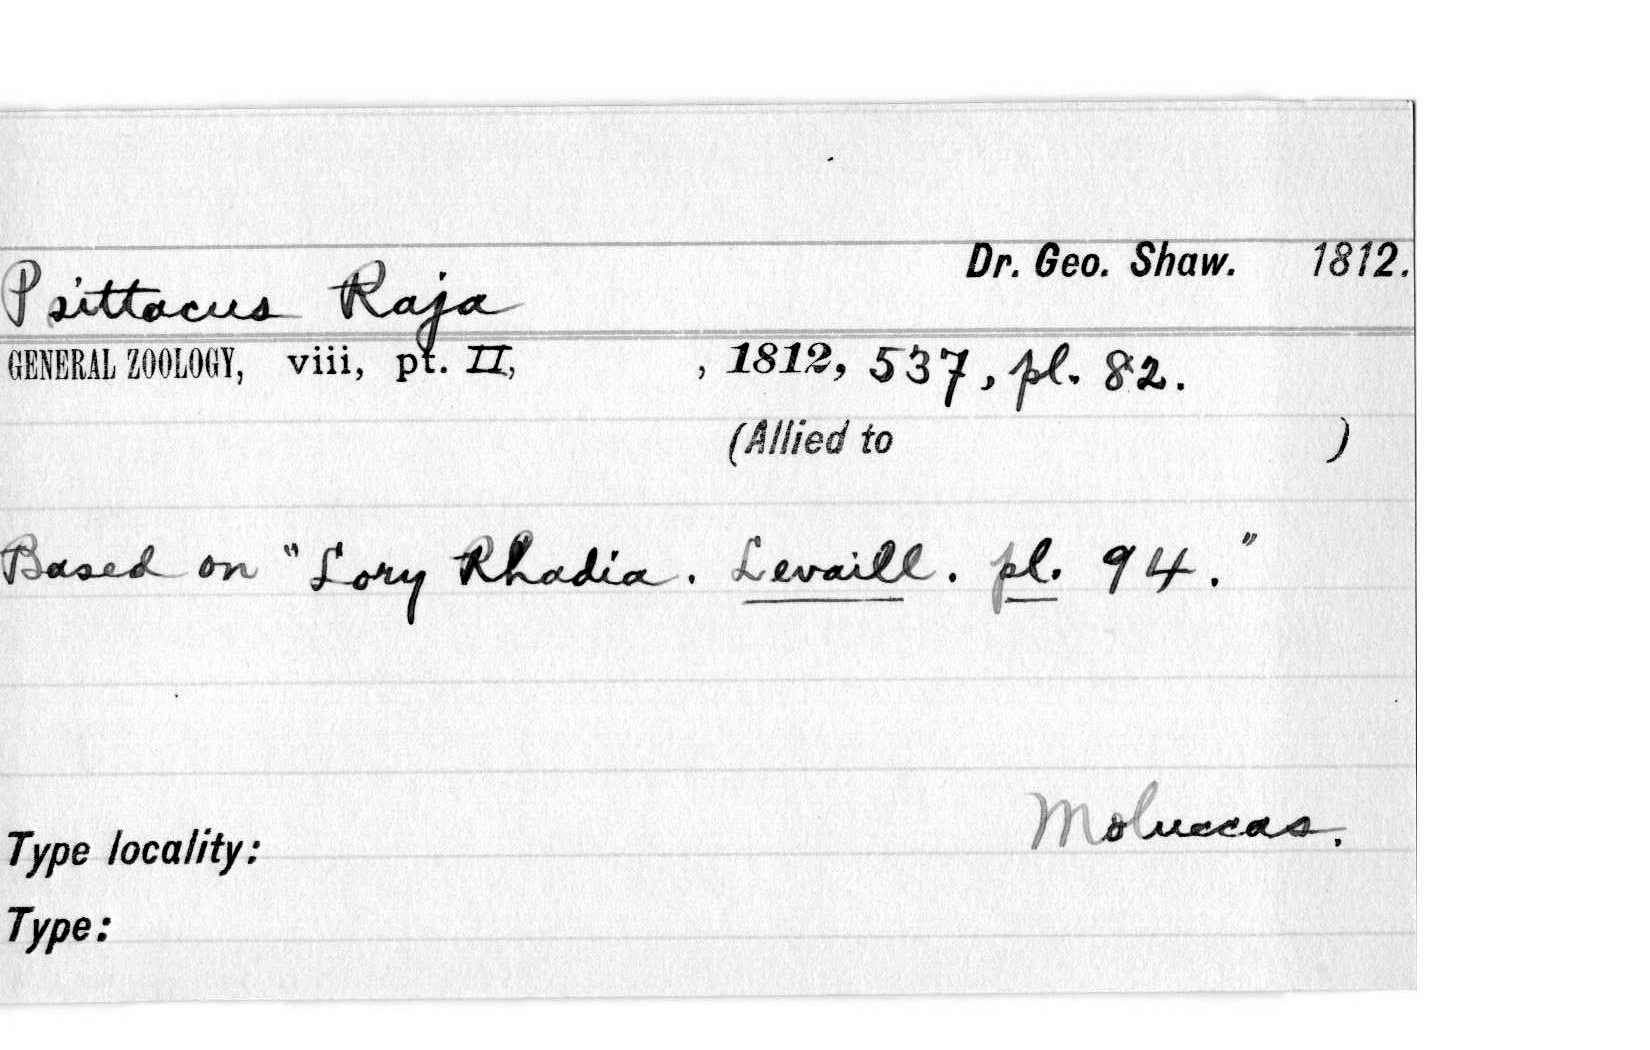 Dr. Geo. Shaw. 1812.
Psittacus Raja
GENERAL ZOOLOGY, viii, pt. II, , 1812, 537, pl. 82.
(Allied to )
Based on "Lory Rhadia. Levaill. pl. 94."
Moluccas.
Type locality:
Type: